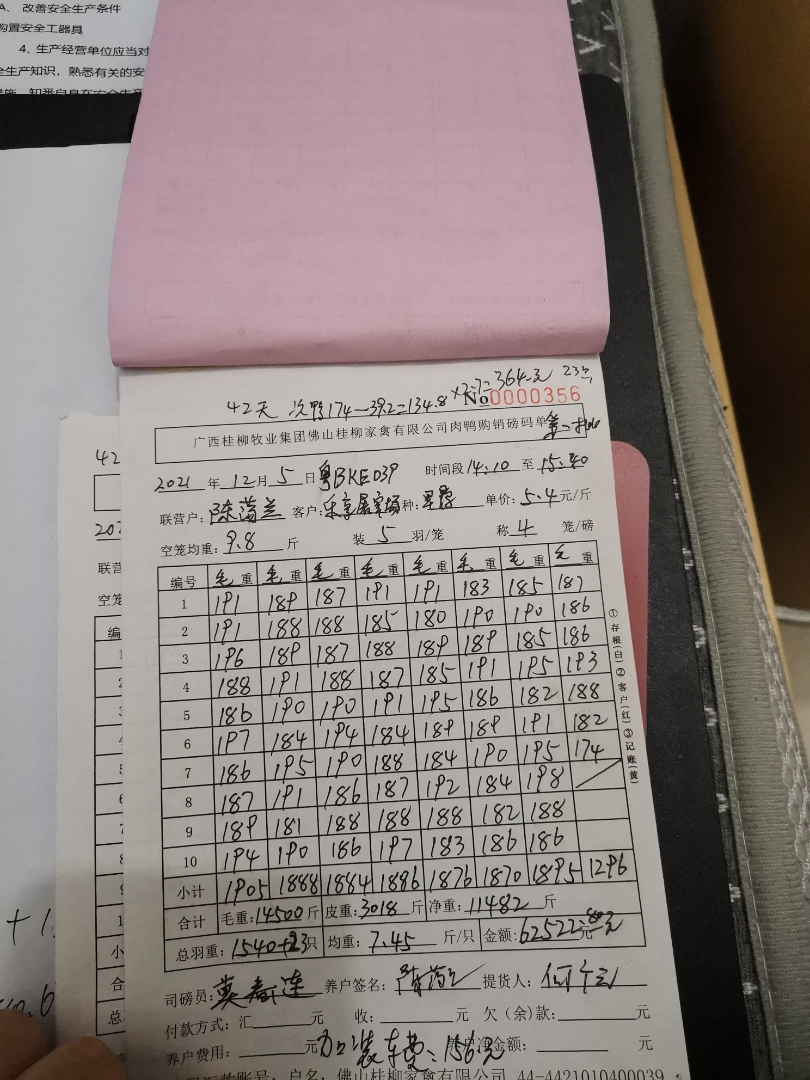 A、 改善安全生产条件
购置安全工器具
4、生产经营单位应当对
全生产知识，熟悉有关的安
42天 次鸭174-39.2=134.8×2.7=364元 23只
No 0000356
广西桂柳牧业集团佛山桂柳家禽有限公司肉鸭购销磅码单
2021 年 12 月 5 日 粤BKE039 时间段 14:10 至 15:40
联营户: 客户: 种: 单价: 5.4 元/斤
空笼均重: 9.8 斤 装 5 羽/笼 称 4 笼/磅
编号 毛重 毛重 毛重 毛重 毛重 毛重 毛重 毛重
1 191 189 187 191 191 183 185 187
2 191 188 188 185 180 190 190 186
3 196 189 187 188 189 189 185 186
4 188 191 188 187 185 191 195 193
5 186 190 190 191 195 186 182 188
6 197 184 194 184 189 189 191 182
7 186 195 190 188 184 190 195 174
8 187 191 186 187 192 184 198
9 189 181 188 188 188 182 188
10 194 190 186 197 183 186 186
小计 1905 1888 1884 1886 1876 1870 1895 1296
合计 毛重: 14500 斤 皮重: 3018 斤 净重: 11482 斤
总羽重: 1540+23 只 均重: 7.45 斤/只 金额: 62522.80元
①存根(白)②客户(红)③记账(黄)
司磅员: 莫春连 养户签名: 提货人:
付款方式: 汇 元 收: 元 欠(余)款: 元
养户费用: 元 加装车费: 156元 净金额: 元
佛山桂柳家禽有限公司 44-4421010400039